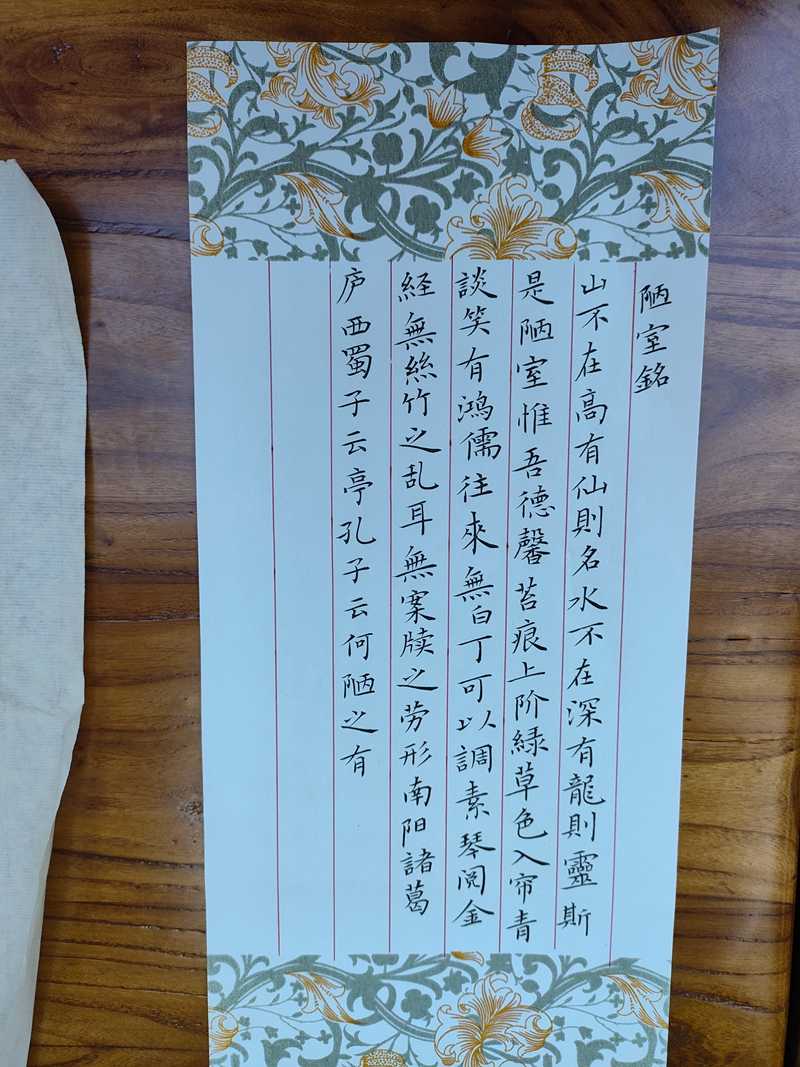 陋室銘
山不在高有仙則名水不在深有龍則靈斯
是陋室惟吾德馨苔痕上阶緑草色入帘青
談笑有鴻儒往來無白丁可以調素琴阅金
経無絲竹之乱耳無案牍之劳形南阳諸葛
庐西蜀子云亭孔子云何陋之有